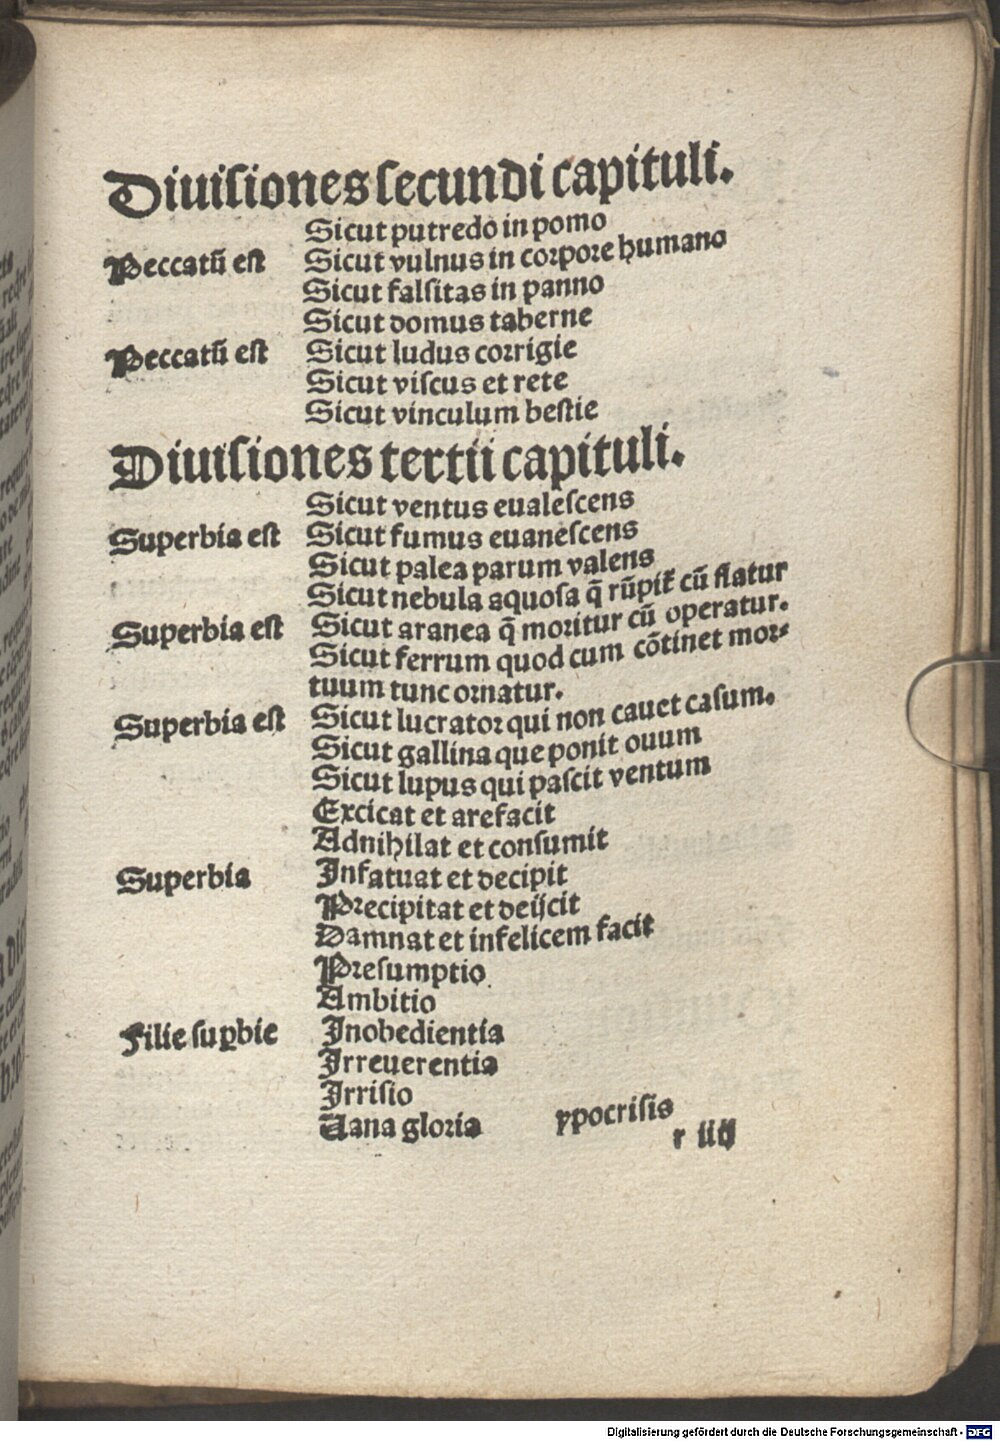 Diuisiones secundi capituli.
Sicut putredo in pomo
Peccatū est Sicut vulnus in corpore humano
Sicut falsitas in panno
Sicut domus taberne
Peccatū est Sicut ludus corrigie
Sicut viscus et rete
Sicut vinculum bestie
Diuisiones tertii capituli.
Sicut ventus eualescens
Superbia est Sicut fumus euanescens
Sicut palea parum valens
Sicut nebula aquosa q̄ rūpit᷑ cū flatur
Superbia est Sicut aranea q̄ moritur cū operatur.
Sicut ferrum quod cum cōtinet mor⸗
tuum tunc ornatur.
Superbia est Sicut lucrator qui non cauet casum.
Sicut gallina que ponit ouum
Sicut lupus qui pascit ventum
Excicat et arefacit
Adnihilat et consumit
Superbia Infatuat et decipit
Precipitat et deijcit
Damnat et infelicem facit
Presumptio
Ambitio
Filie suꝑbie Inobedientia
Irreuerentia
Irrisio
Uana gloria ypocrisis
r iiij
Digitalisierung gefördert durch die Deutsche Forschungsgemeinschaft - DFG